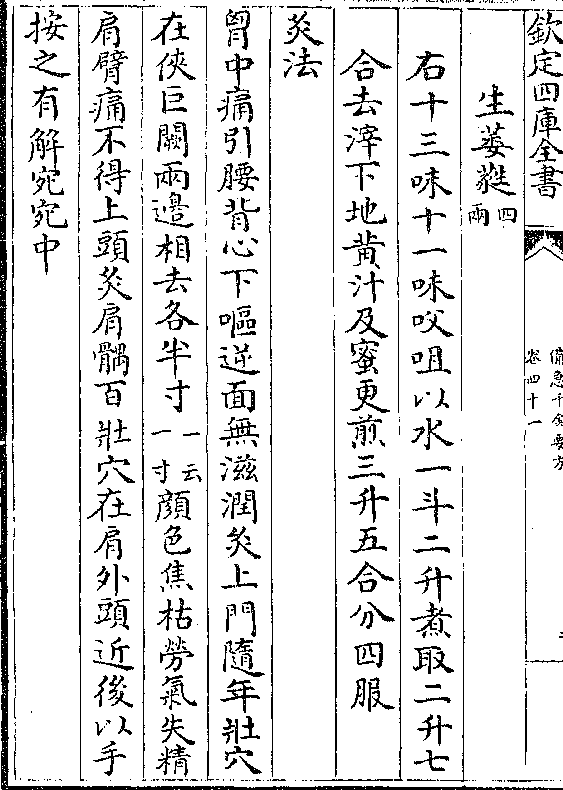 欽定四庫全書
備急千金要方
卷四十一
生葳蕤四兩
右十三味十一味㕮咀以水一斗二升煮取二升七
合去滓下地黃汁及蜜更煎三升五合分四服
灸法
胷中痛引腰背心下嘔逆面無滋潤灸上門隨年壯穴
在俠巨闕兩邊相去各半寸一云一寸顏色焦枯勞氣失精
肩臂痛不得上頭灸肩髃百壯穴在肩外頭近後以手
按之有解宛宛中